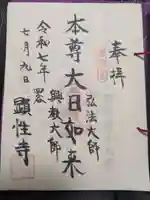 奉拝
弘法大師
本尊大日如来
興教大師
令和七年
七月九日
顕性寺